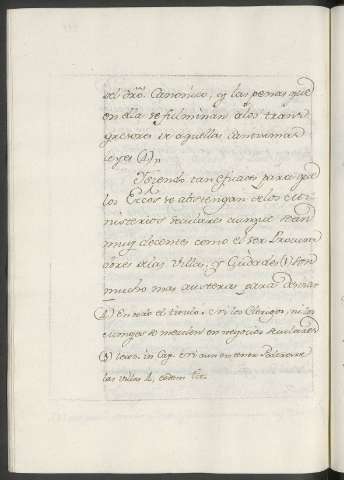 del dro. Canonico, y las penas que
en ella se fulminan a los trans-
gresores de aquellas santisimas
leyes (1)"
Y siendo tan eficaces para que
los Ecos. se abstengan de los mi-
nisterios seculares aunque sean
muy decentes como el ser Procura-
dores de las Villas, y Ciudades () son
mucho mas austeras para
() En todo el titulo Ni los Clerigos, ni los
Monges se mezclen en negocios seculares
() in Cap.
las villas eodem tit.